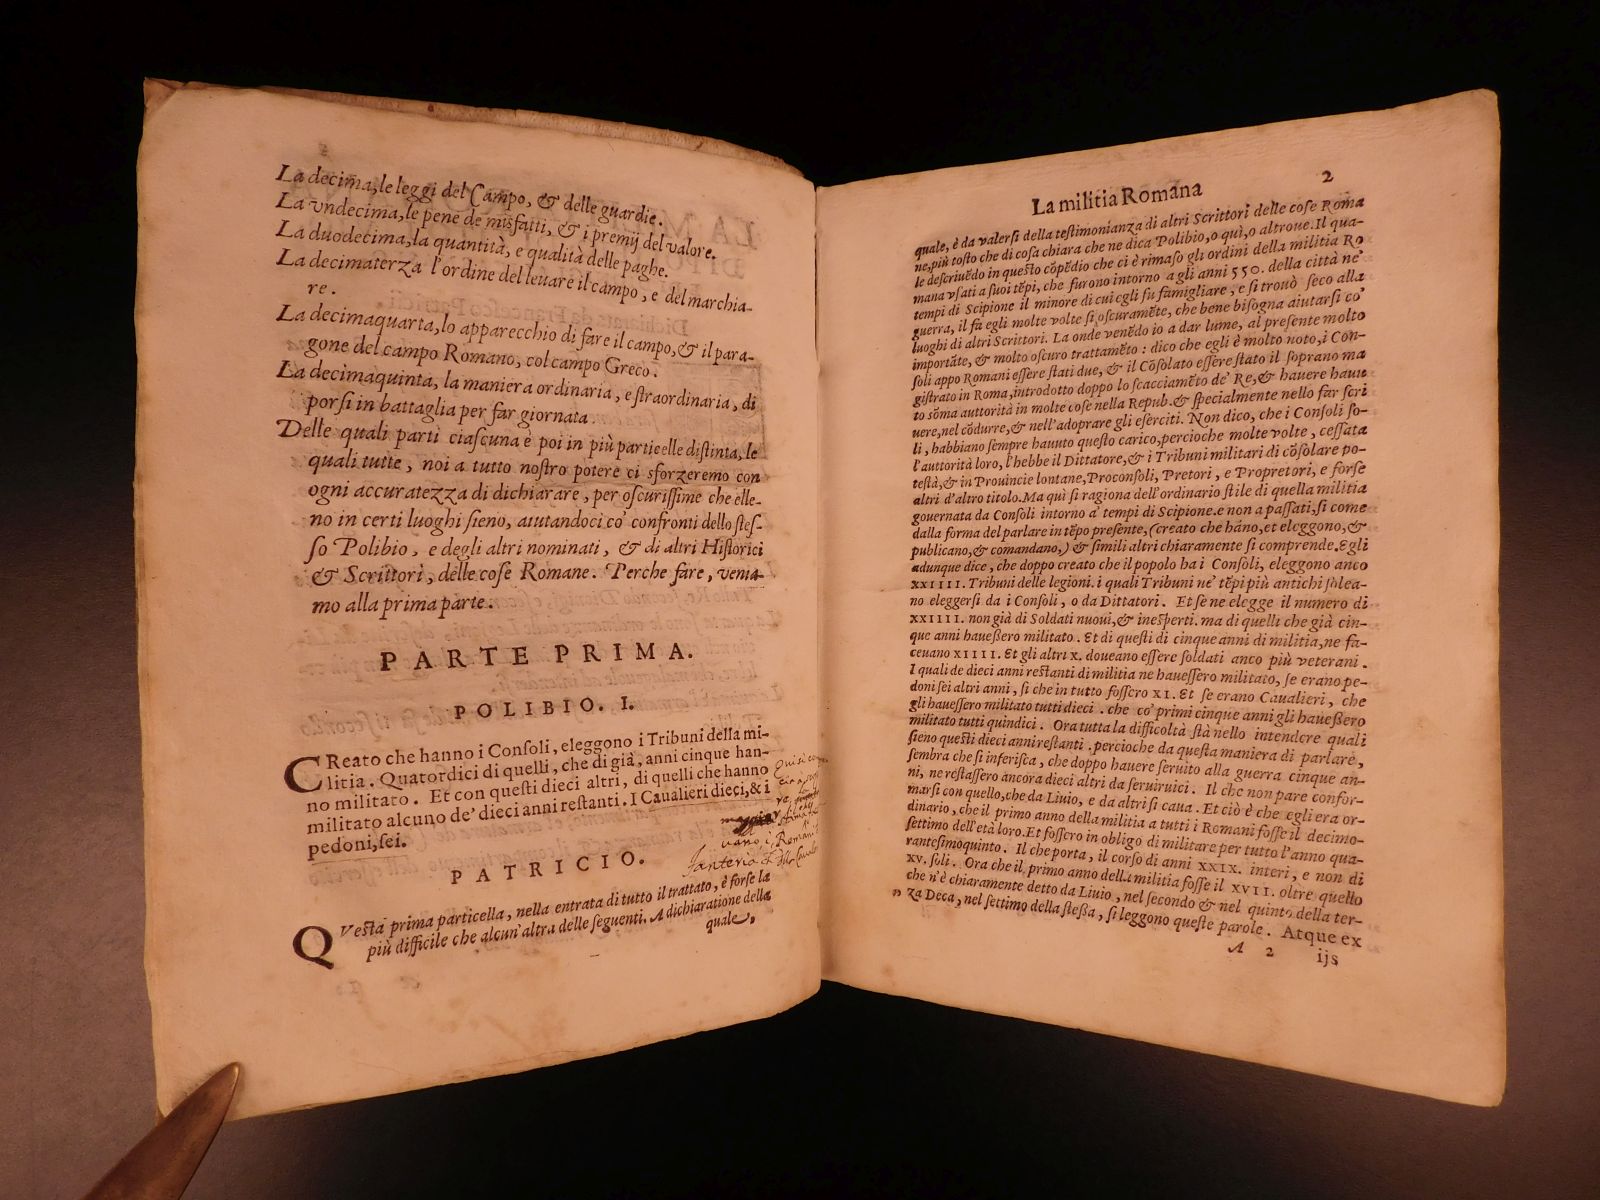 La decima, le leggi del Campo, & delle guardie.
La vndecima, le pene de misfatti, & i premij del valore.
La duodecima, la quantità, e qualità delle paghe.
La decimaterza l'ordine del leuare il campo, e del marchia-
re.
La decimaquarta, lo apparecchio di fare il campo, & il para-
gone del campo Romano, col campo Greco.
La decimaquinta, la maniera ordinaria, e straordinaria, di
porsi in battaglia per far giornata.
Delle quali parti ciascuna è poi in più particelle distinta, le
quali tutte, noi a tutto nostro potere ci sforzeremo con
ogni accuratezza di dichiarare, per oscurissime che elle-
no in certi luoghi sieno, aiutandoci co' confronti dello stes-
so Polibio, e degli altri nominati, & di altri Historici
& Scrittori, delle cose Romane. Perche fare, venia-
mo alla prima parte.
PARTE PRIMA.
POLIBIO. I.
CReato che hanno i Consoli, eleggono i Tribuni della mi-
litia. Quatordici di quelli, che di già, anni cinque han-
no militato. Et con questi dieci altri, di quelli che hanno
militato alcuno de' dieci anni restanti. I Caualieri dieci, & i
pedoni, sei.
uano i Romani
fanteria
PATRICIO.
QVesta prima particella, nella entrata di tutto il trattato, è forse la
più difficile che alcun'altra delle seguenti. A dichiaratione della
quale,
La militia Romana 2
quale, è da valersi della testimonianza di altri Scrittori delle cose Roma
ne, più tosto che di cosa chiara che ne dica Polibio, o quì, o altroue. Il qua-
le descriuēdo in questo cōpēdio che ci è rimaso gli ordini della militia Ro
mana vsati a suoi tēpi, che furono intorno a gli anni 550. della città ne'
tempi di Scipione il minore di cui egli fu famigliare, e si trouò seco alla
guerra, il fa egli molte volte sì oscuramēte, che bene bisogna aiutarsi co'
luoghi di altri Scrittori. La onde venēdo io a dar lume, al presente molto
importāte, & molto oscuro trattamēto: dico che egli è molto noto, i Con-
soli appo Romani essere stati due, & il Cōsolato essere stato il soprano ma
gistrato in Roma, introdotto doppo lo scacciamēto de' Re, & hauere hauu
to sōma auttorità in molte cose nella Repub. & specialmente nello far scri
uere, nel cōdurre, & nell'adoprare gli eserciti. Non dico, che i Consoli so-
li, habbiano sempre hauuto questo carico, percioche molte volte, cessata
l'auttorità loro, l'hebbe il Dittatore, & i Tribuni militari di cōsolare po-
testà, & in Prouincie lontane, Proconsoli, Pretori, e Propretori, e forse
altri d'altro titolo. Ma quì si ragiona dell'ordinario stile di quella militia
gouernata da Consoli intorno a' tempi di Scipione. e non a passati, si come
dalla forma del parlare in tēpo presente, (creato che hāno, et eleggono, &
publicano, & comandano,) & simili altri chiaramente si comprende. Egli
adunque dice, che doppo creato che il popolo ha i Consoli, eleggono anco
XXIIII. Tribuni delle legioni. i quali Tribuni ne' tēpi più antichi solea-
no eleggersi da i Consoli, o da Dittatori. Et se ne elegge il numero di
XXIIII. non già di Soldati nuoui, & inesperti. ma di quelli che già cin-
que anni hauessero militato. Et di questi di cinque anni di militia, ne fa-
ceuano XIIII. Et gli altri X. doueano essere soldati anco più veterani.
I quali de dieci anni restanti di militia ne hauessero militato, se erano pe-
doni sei altri anni, sì che in tutto fossero XI. Et se erano Caualieri, che
gli hauessero militato tutti dieci. che co' primi cinque anni gli hauessero
militato tutti quindici. Ora tutta la difficoltà stà nello intendere quali
sieno questi dieci anni restanti. percioche da questa maniera di parlare,
sembra che si inferisca, che doppo hauere seruito alla guerra cinque an-
ni, ne restassero ancora dieci altri da seruirui ci. Il che non pare confor-
marsi con quello, che da Liuio, e da altri si caua. Et ciò è che egli era or-
dinario, che il primo anno della militia a tutti i Romani fosse il decimo-
settimo dell'età loro. Et fossero in obligo di militare per tutto l'anno qua-
rantesimoquinto. Il che porta, il corso di anni XXIX. interi, e non di
XV. soli. Ora che il primo anno della militia fosse il XVII. oltre quello
che n'è chiaramente detto da Liuio, nel secondo & nel quinto della ter-
za Deca, nel settimo della stessa, si leggono queste parole. Atque ex
A 2 ijs